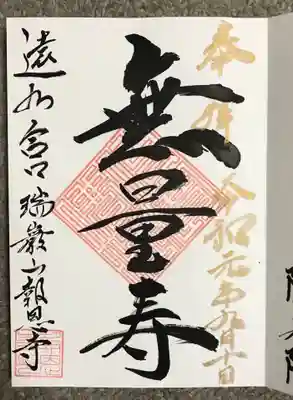 奉拝 令和元年九月十日
無量寿
遠州宮口 瑞巌山報恩寺